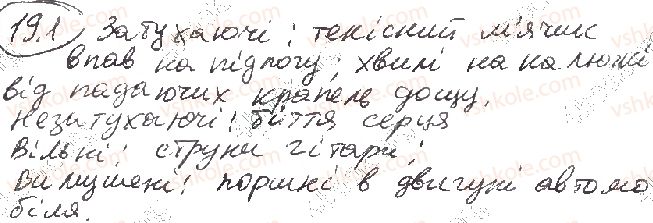 19.1 Затухаючі: тенісний м'ячик
впав на підлогу; хвилі на калюжі
від падаючих крапель дощу.
Незатухаючі: биття серця
Вільні: струни гітари;
Вимушені: поршні в двигуні автомо
біля.